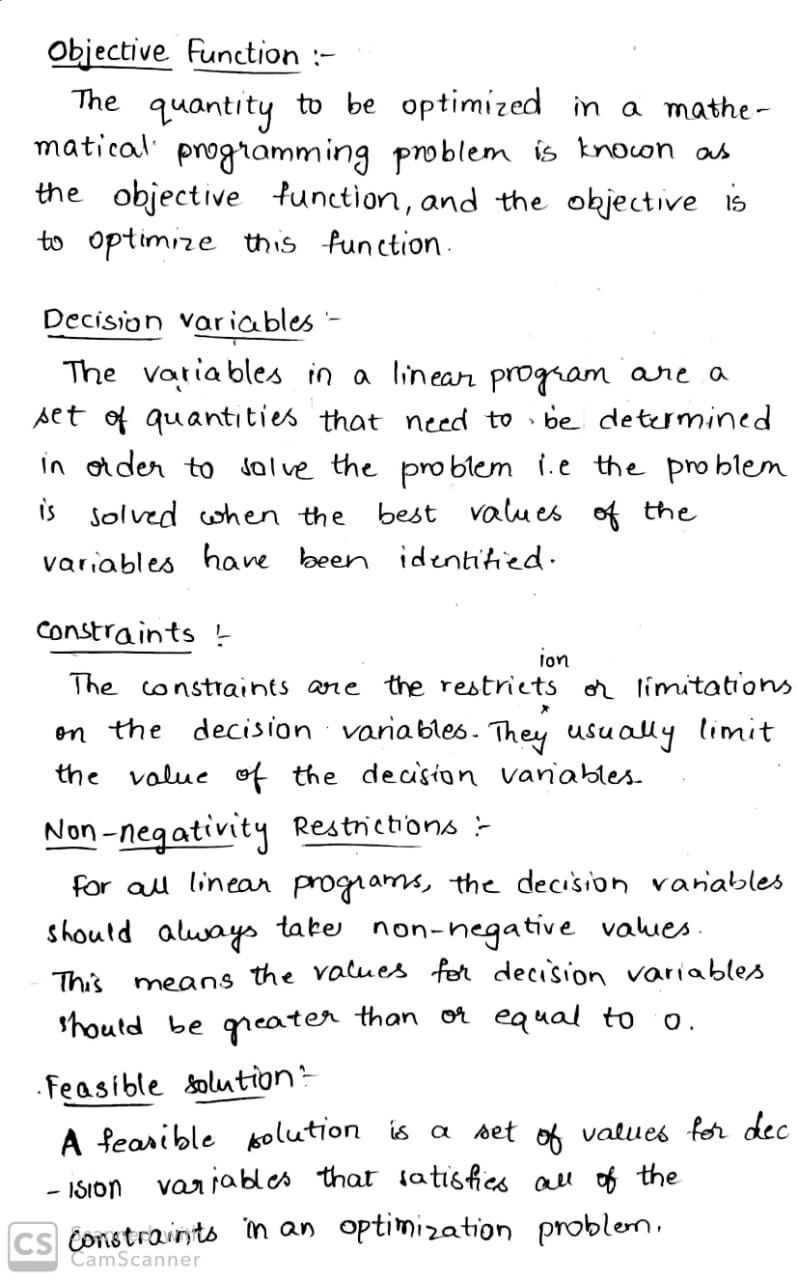 Objective Function :-
The quantity to be optimized in a mathe-
matical programming problem is known as
the objective function, and the objective is
to optimize this function.
Decision variables :-
The variables in a linear program are a
set of quantities that need to be determined
in order to solve the problem i.e the problem
is solved when the best values of the
variables have been identified.
Constraints :-
ion
The constraints are the restricts or limitations
on the decision variables. They usually limit
the value of the decision variables.
Non-negativity Restrictions :-
For all linear programs, the decision variables
should always take non-negative values.
This means the values for decision variables
should be greater than or equal to 0.
Feasible solution :-
A feasible solution is a set of values for dec
-ision variables that satisfies all of the
constraints in an optimization problem.
CS Scanned with
CamScanner